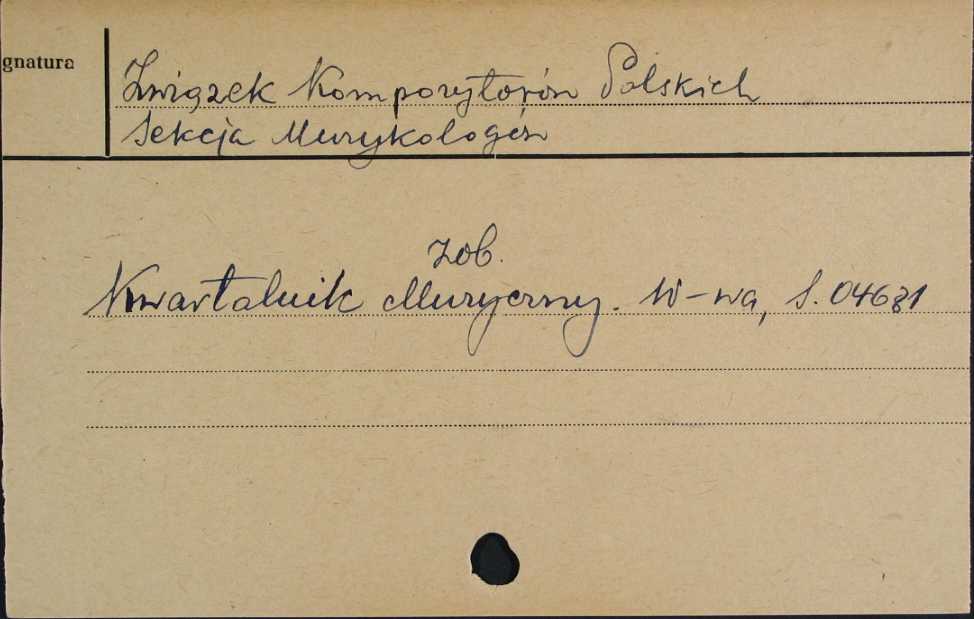 gnatura
Związek Kompozytorów Polskich
Sekcja Muzykologów
zob.
Kwartalnik Muzyczny. W-wa, S. 04681